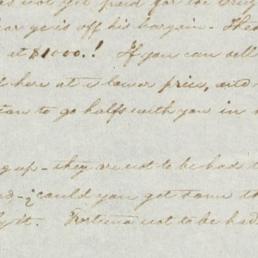 not yet paid for the
ye is off his bargain. The
at $1000.! If you can sell
here at a lower price, and
to go halfs with you in
up - they are not to be had
could you get some to
it. not to be had